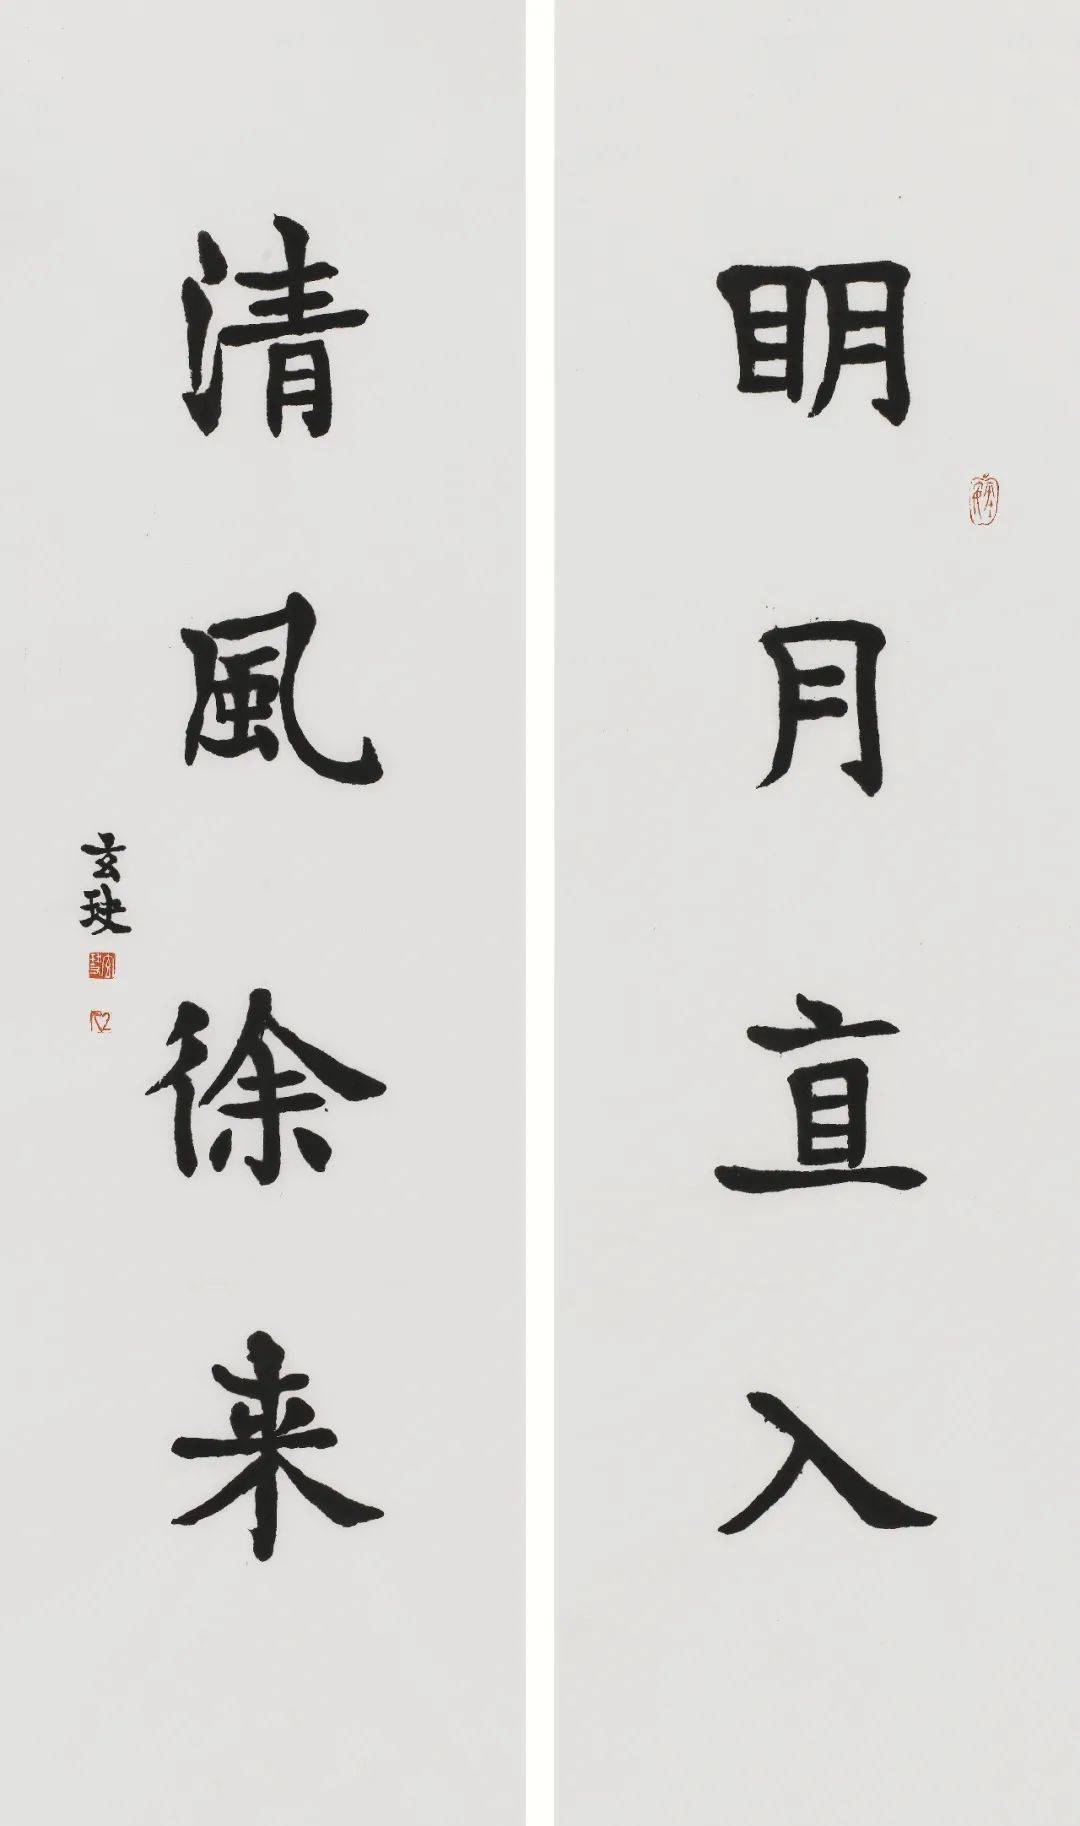 明月直入
清風徐来
玄玦